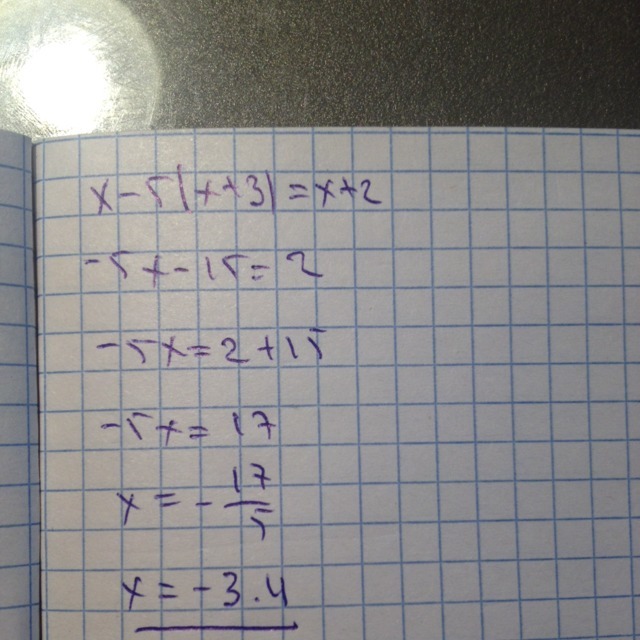 x-5|x+3|=x+2
-5x-15=2
-5x=2+15
-5x=17
x=-17/5
x=-3.4